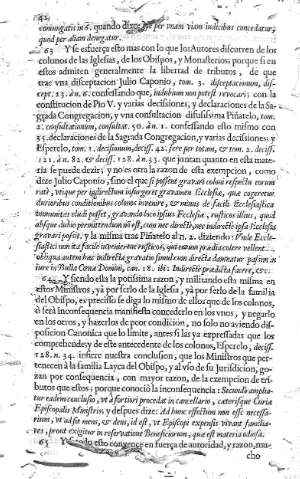 42
coniugatis in §. quando dixo, que per unam viam indictibus concedatur,
quod per aliam denegatur.
63 Y se esfuerça esto mas con lo que los Autores discurren de los
colonos de las Iglesias, de los Obispos, y Monasterios; porque si en
estos admiten generalmente la libertad de tributos, de que
trae vna disceptacion Julio Caponio, tom. 3. disceptacionum, dis-
cept. 23. à n. 6. confessando que, indubium non potest revocari: con la
constitucion de Pio V. y varias decisiones, y declaraciones de la Sa-
grada Congregacion, y vna consultacion difusissima Piñatelo, tom.
2. consultationum, consultat. 50. àn. 1. confessando esto mismo con
35. declaraciones de la Sagrada Congregacion, y varias decisiones: y
Esperelo, tom. 1. decisionum, decis. 42. fere per totam, & tom. 2. decis.
121. àn. 82. & decis. 128. àn. 33. que juntan quanto en esta mate-
ria se puede dezir; y no es otra la razon de esta exempcion, como
dize Julio Caponio, sino el que si possent gravari coloni respectu eorum
ratè, utique per indirectum inferretur gravamen Ecclesiæ, quæ cogeretur
durioribus conditionibus colonos invenire, & minus de facili Ecclesiastica
immunitas eludi posset, gravando loco ipsius Ecclesiæ, rusticos illius, quod
absque dubio permittendum nõ est, cum nec directè, nec indirectè ipsa Ecclesia
gravari possit. y la misma trae Piñatelo al n. 2. diziendo: Prælo Eccle-
siastici tum ita facilè invenirent rusticos, qui eorum prædia colere vellent...
obliqua autem hæc indirecta gravatio simul cum directa damnatur passim in
iure in Bulla Cenæ Domini, cap. 18. ibi: Indirectè prædicta facere, &c.
64 Y siendo esta la potissima razon, y militando esta misma en
estos Ministros, yà por serlo de la Iglesia, yà por serlo de la familia
del Obispo, es preciso se diga lo mismo de ellos que de los colonos,
ò serà inconsequencia manifiesta concederlo en los vnos, y negarlo
en los otros, y hazerlos de peor condicion, no solo no aviendo dis-
posicion Canonica que lo limite, antes si las yà expressadas que los
comprehenden; y de este antecedente de los colonos, Esperelo, decis.
128. n. 34. infiere nuestra conclusion, que los Ministros que perte-
necen à la familia Layca del Obispo, y al vso de su Jurisdicion, go-
zan por consequencia, con mayor razon, de la exempcion de tri-
butos que ellos; porque conociò la inconsequencia: Secundò amplia-
tur eadem conclusio, ut à fortiori procedat in cancellario, cæterisque Curiæ
Episcopalis Ministris. y despues dize: Ad hunc effectum non est necessa-
rium, ut ad se mens, & dem, id est, ut Episcopi expensis vivant familia-
res, prout exigitur in reservatione Beneficiorum, quæ est materia odiosa.
65 Y siendo esto convence en fuerça de autoridad, y razon, mu-
cho